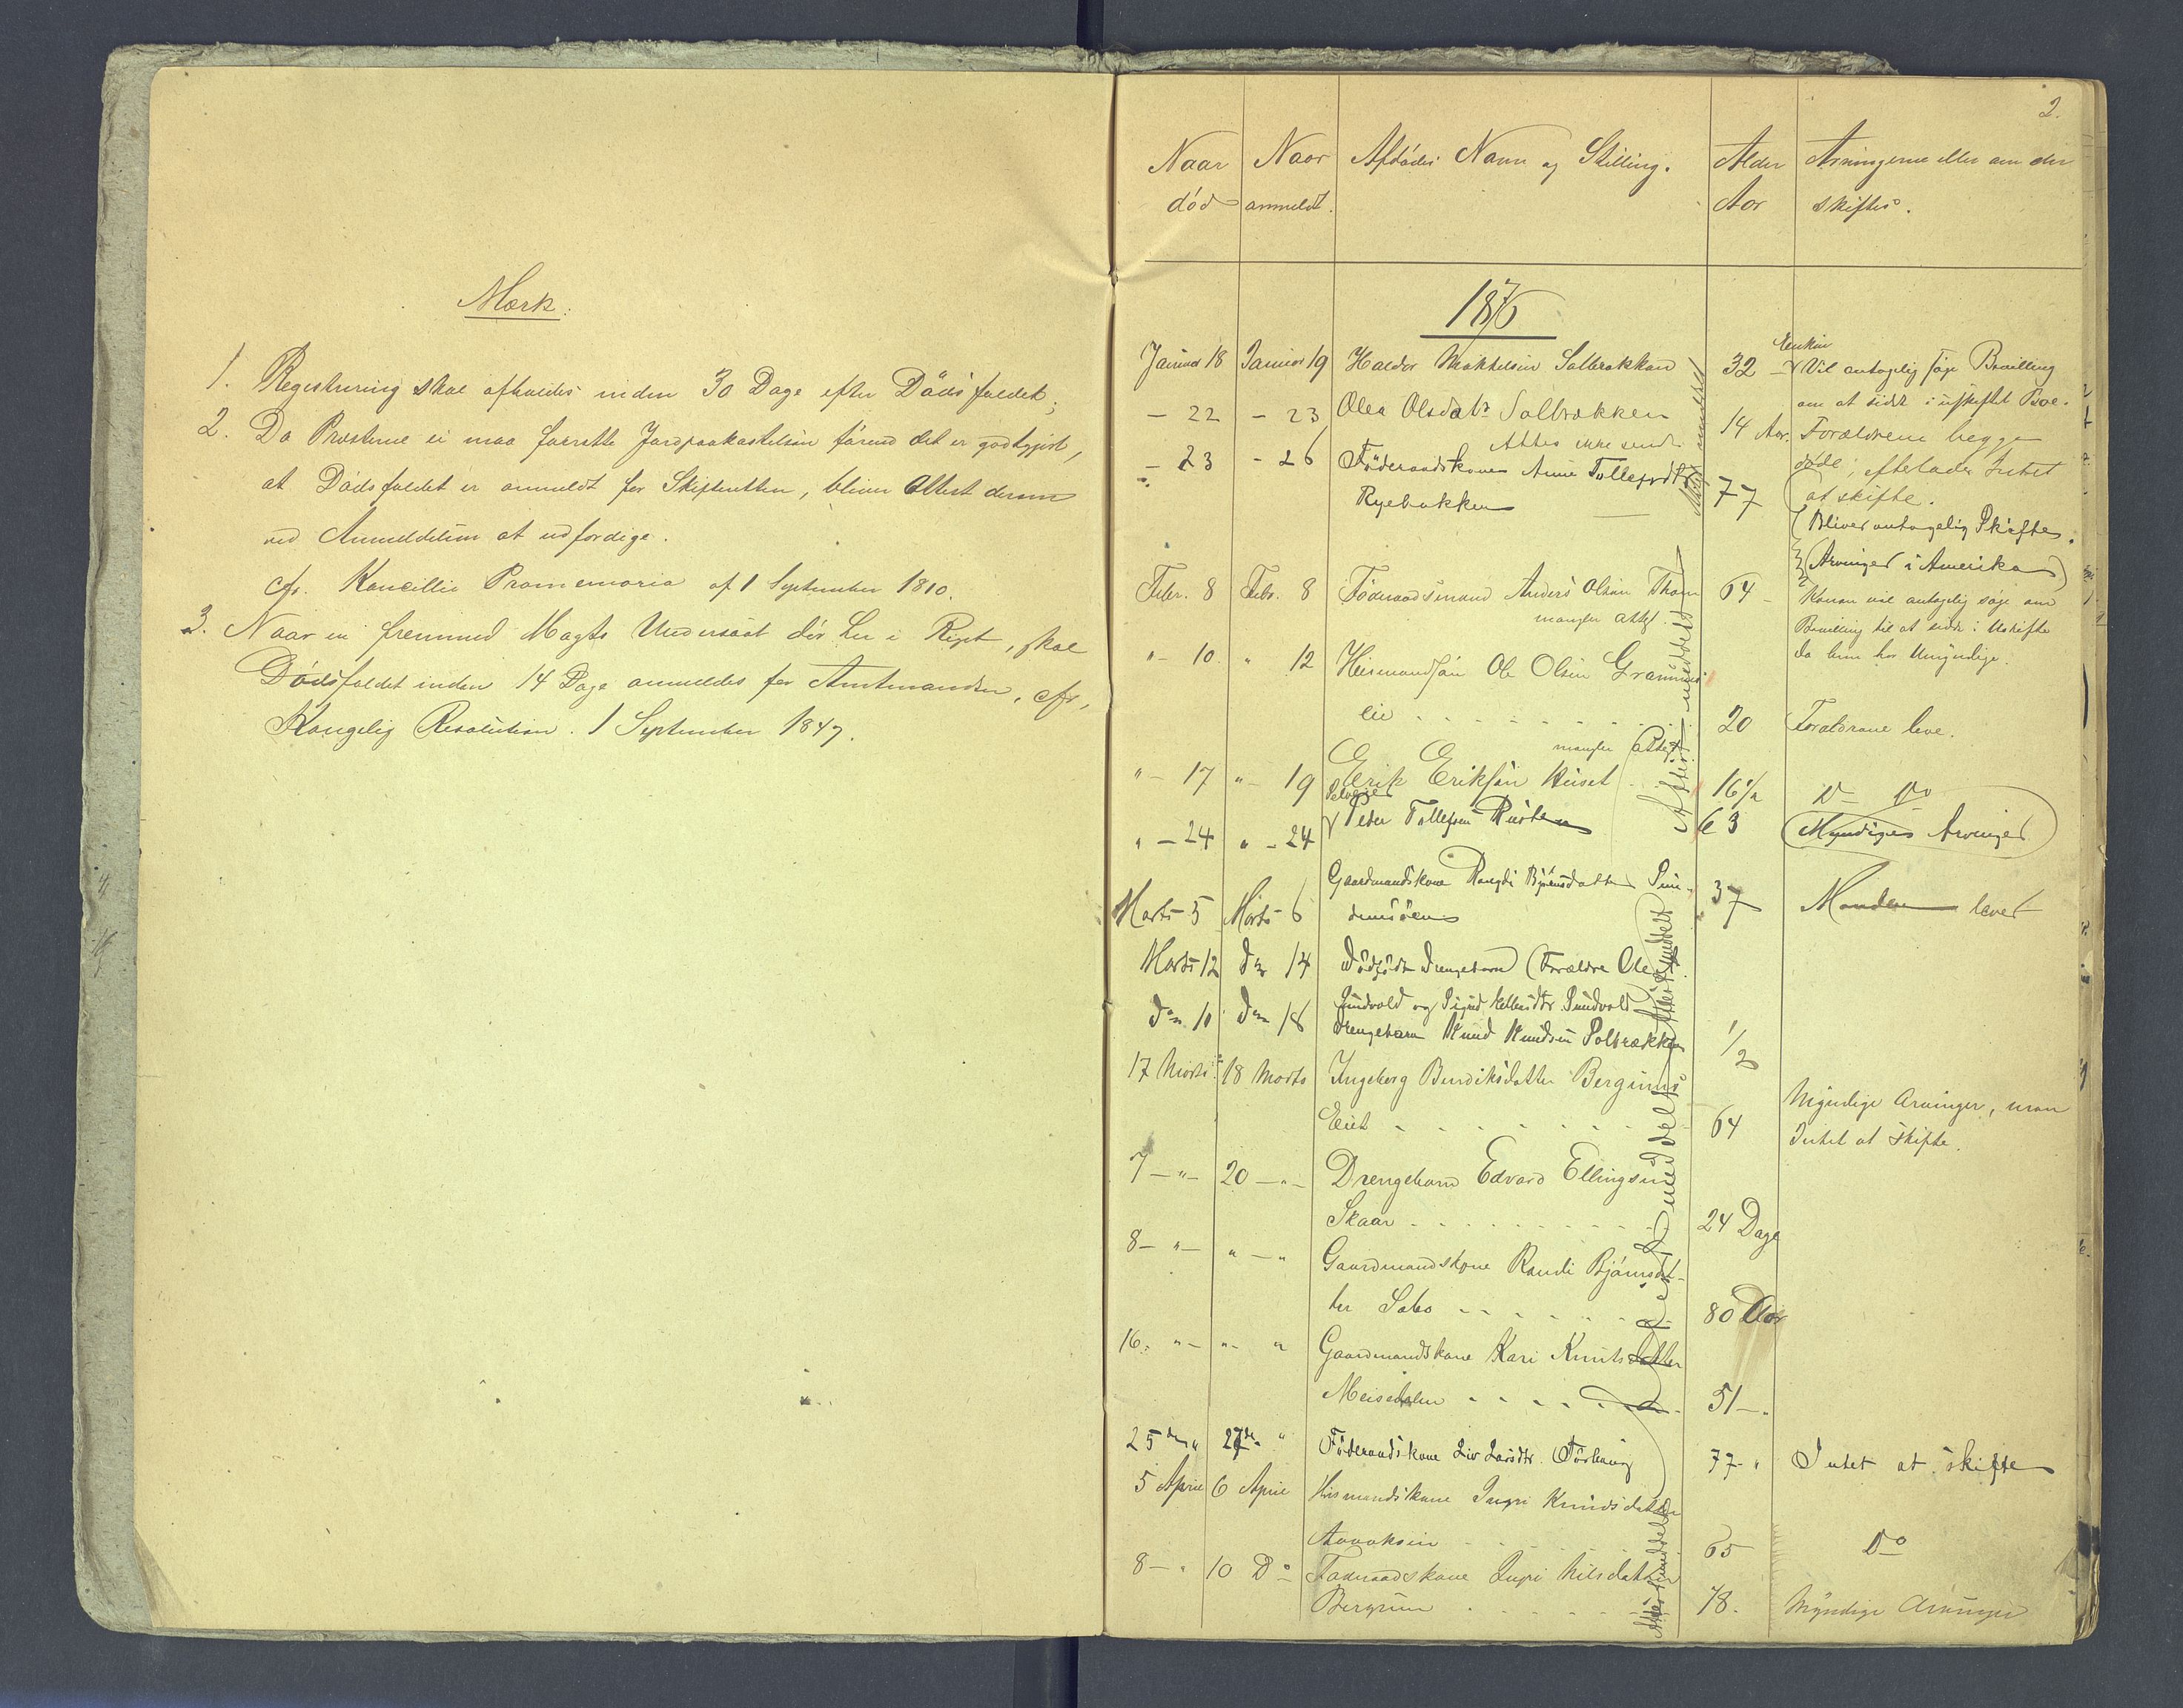 Mærk:
1. Registrering skal afholdes inden 30 Dage efter Dödsfaldet;
2. Da Præsterne ei maa forrette Jordpaakastelsen förend det er godtgjort,
at Dödsfaldet er anmeldt for Skifteretten, bliver Attest derom
ved Anmeldelsen at udfærdige.
cfr. Kancellie Promemoria af 1 September 1810.
3. Naar en fremmed Magts Undersaat dör her i Riget, skal
Dödsfaldet inden 14 Dage anmeldes for Amtmanden, cfr,
Kongelig Resolution. 1 September 1847.
2.
Naar död
Naar anmeldt.
Afdödes Navn og Stilling.
Alder Aar
Arvingerne eller om der skiftes.
1876
Januar 18 Januar 19 Haldor Solbrækken 32 - Enken
Vil antagelig söge Bevilling
om at sidde i uskiftet Boe.
- 22 - 23 Olea Olsdatr Solbrækken 14 Aar. Forældrene begge
døde; efterlader Intet
at skifte.
Attes ikke sendt
- 23 - 26 Föderaadskone Anne Tollefsdtr 77
Ryebakken
Bliver antagelig Skifte.
(Arvinger i Amerika)
Febr. 8 Febr. 8 Föderaadsmand Anders Olsen 64 - Konen vil antagelig söge om
Bevilling til at sidde i Uskifte
da hun har Umyndige.
mangler attest.
" - 10. " 12 Huusmandsön Ole Olsen
lie 20 Forældrene leve.
mangler Attest
" - 17 " - 19 Erik Eriksön Huset 16 1/2 Do Do
" - 24 " - 24 Peder Tollefsen Rusten 63 Myndige Arvinger
Marts 5 Marts 6 Gaardmandskone Rangdi Björnsdatter 37 Manden lever
Marts 12 Do 14 Dödfödt Drengebarn (Forældre Ole
Sundvold og Sigrid Sundvold)
Do 10 Do 18 Drengebarn Knud Knudsen Solbrækken 1/2
17 Marts 18 Marts Ingeborg Bendiksdatter Bergums
Eiet 64 Myndige Arvinger, men
Intet at skifte.
7 - " - 20 - " - Drengebarn Edvard Ellingsen
Skaar 24 Dage
8 - " - " - " Gaardmandskone Randi Björnsdat-
ter Sabo 80 Aar
16. " - " - " Gaardmandskone Kari Knutsdatter
51 - "
25de " 27de " Föderaadskone Liv Larsdtr. 77 - " Intet at skifte
5 April 6 April Huusmandskone Ingri Knudsdatter
65 Do
8 - " 10 Do Föderaadskone Ingri Nilsdatter
Bergum 78. Myndige Arvinger
Attest meddelt
Attest meddelt
Attest meddelt
Attest meddelt